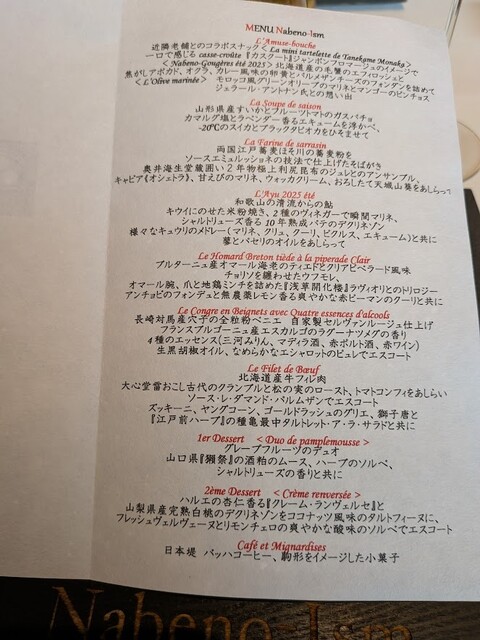 MENU Nabeno-Ism
L'Amuse-bouche
近隣老舗とのコラボスナック < La mini tartelette de Tanekame Monaka >
一口で感じる casse-croûte 『カスクート』ジャンボンフロマージュのイメージで
< Nabeno-Gougères été 2025 > 北海道産の毛蟹のエフィロッシェと
焦がしアボカド、オクラ、カレー風味の卵黄とパルメザンチーズのフォンダンを詰めて
< L'Olive marinée > モロッコ風グリーンオリーブのマリネとマンゴーのピンチョス
ジェラール・アントナン氏との想い出
La Soupe de saison
山形県産すいかとフルーツトマトのガスパチョ
カマルグ塩とラベンダー香るエキュームを浮かべ、
-20℃のスイカとブラックタピオカをひそませて
La Farine de sarrasin
両国江戸蕎麦ほそ川の蕎麦粉を
ソースエミュルッショネの技法で仕上げたそばがき
奥井海生堂蔵囲い2年物極上利尻昆布のジュレとのアンサンブル、
キャビア《オシェトラ》、甘えびのマリネ、ウォッカクリーム、おろしたて天城山葵をあしらって
L'Ayu 2025 été
和歌山の清流からの鮎
キウイにのせた米粉焼き、2種のヴィネガーで瞬間マリネ、
シャルトリューズ香る10年熟成パテのデクリネゾン
様々なキュウリのメドレー(マリネ、クリュ、クーリ、ピクルス、エキューム)と共に
蓼とパセリのオイルをあしらって
Le Homard Breton tiède à la piperade Clair
ブルターニュ産オマール海老のティエドとクリアピペラード風味
チョリソを纏わせたウフモレ、
オマール腕、爪と地鶏ミンチを詰めた『浅草開化楼』ラヴィオリとのトリロジー
アンチョビのフォンデュと無農薬レモン香る爽やかな赤ピーマンのクーリと共に
Le Congre en Beignets avec Quatre essences d'alcools
長崎対馬産穴子の全粒粉ベニエ　自家製セルヴァンルージュ仕上げ
フランスブルゴーニュ産エスカルゴのラグーナツメグの香り
4種のエッセンス(三河みりん、マディラ酒、赤ポルト酒、赤ワイン)
生黒胡椒オイル、なめらかなエシャロットのピュレでエスコート
Le Filet de Bœuf
北海道産牛フィレ肉
大心堂雷おこし古代のクランブルと松の実のロースト、トマトコンフィをあしらい
ソース・レ・ダマンド・パルムザンでエスコート
ズッキーニ、ヤングコーン、ゴールドラッシュのグリエ、獅子唐と
『江戸前ハーブ』の種亀最中タルトレット・ア・ラ・サラドと共に
1er Dessert < Duo de pamplemousse >
グレープフルーツのデュオ
山口県『獺祭』の酒粕のムース、ハーブのソルベ、
シャルトリューズの香りと共に
2ème Dessert < Crème renversée >
ハルエの杏仁香る『クレーム・ランヴェルセ』と
山梨県産完熟白桃のデクリネゾンをココナッツ風味のタルトフィーヌに、
フレッシュヴェルヴェーヌとリモンチェロの爽やかな酸味のソルベでエスコート
Café et Mignardises
日本堤 バッハコーヒー、駒形をイメージした小菓子
Nabeno-Ism